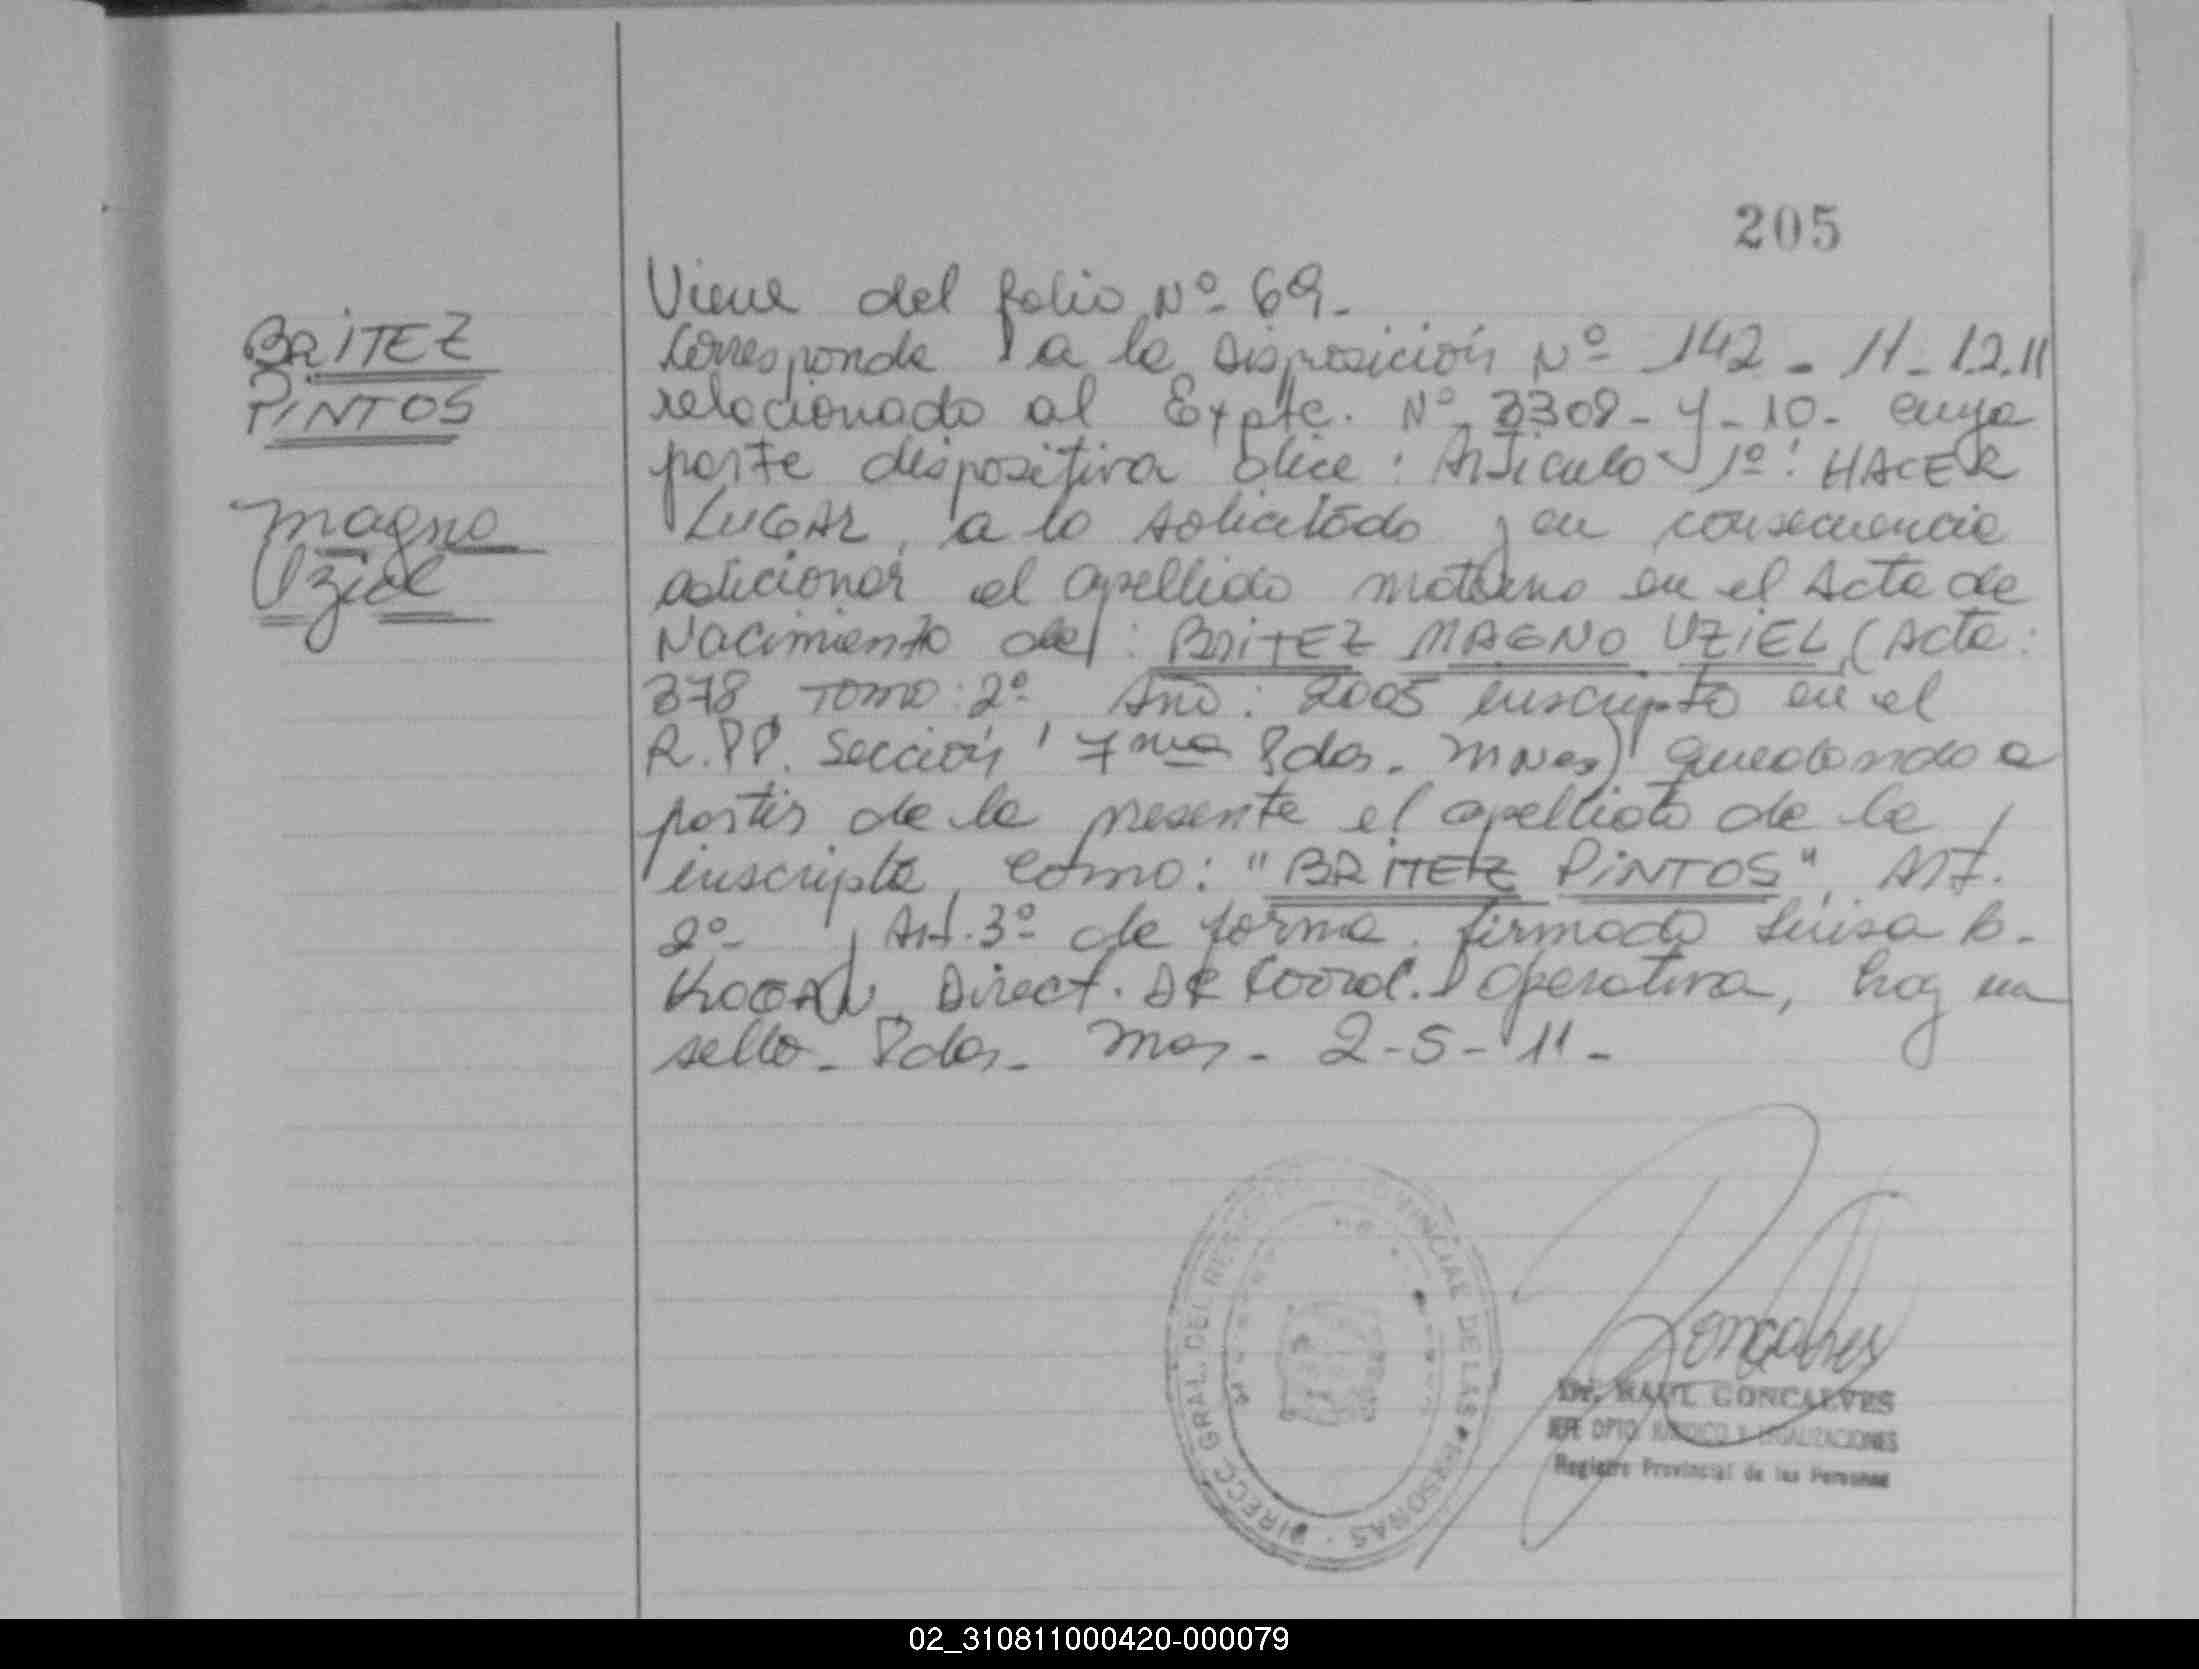 205
BRITEZ
PINTOS
Magno
Uziel
Viene del folio Nº 69-
Corresponde a la Disposición Nº 142 - 11-1.2.11
relacionado al Expte. Nº 3309-Y-10- cuya
parte dispositiva dice: Artículo 1º: HACER
LUGAR, a lo solicitado y en consecuencia
adicionar el apellido materno en el Acta de
Nacimiento de: BRITEZ MAGNO UZIEL, (Acta:
378 TOMO: 2º Año: 2005 inscripto en el
R.PP. Sección 7ma Pdas. Mnes) quedando a
partir de la presente el apellido de la
inscripta como: "BRITEZ PINTOS", Art.
2º- , Art. 3º de forma. firmado Luisa B.
KOGAN Direct. De Coord. Operativa, hay un
sello- Pdas- Mnes- 2-5-11-
DIRECC. GRAL. DEL REGISTRO PROVINCIAL DE LAS PERSONAS
Goncalves
Dr. RAUL GONCALVES
JEFE DPTO JURIDICO Y LEGALIZACIONES
Registro Provincial de las Personas
02_310811000420-000079